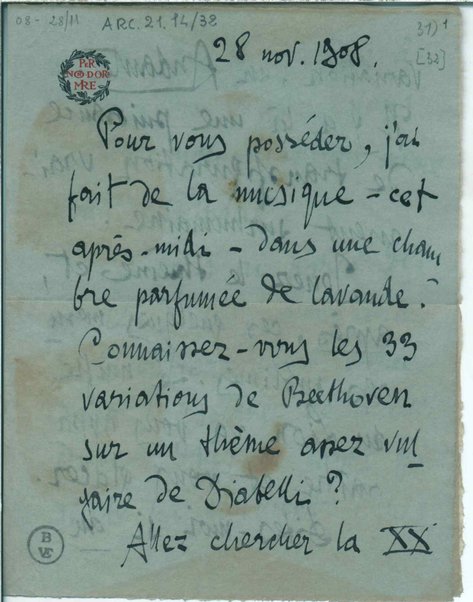 08-28/11
ARC.21.14/38
31) 1
[38]
28 nov. 1908.
PER
NON DOR
MIRE
Pour vous posséder, j'ai
fait de la musique - cet
après-midi - dans une cham
bre parfumée de lavande.
Connaissez-vous les 33
variations de Beethoven
sur un thème assez vul
gaire de Diabelli ?
Allez chercher la XX
B
VE